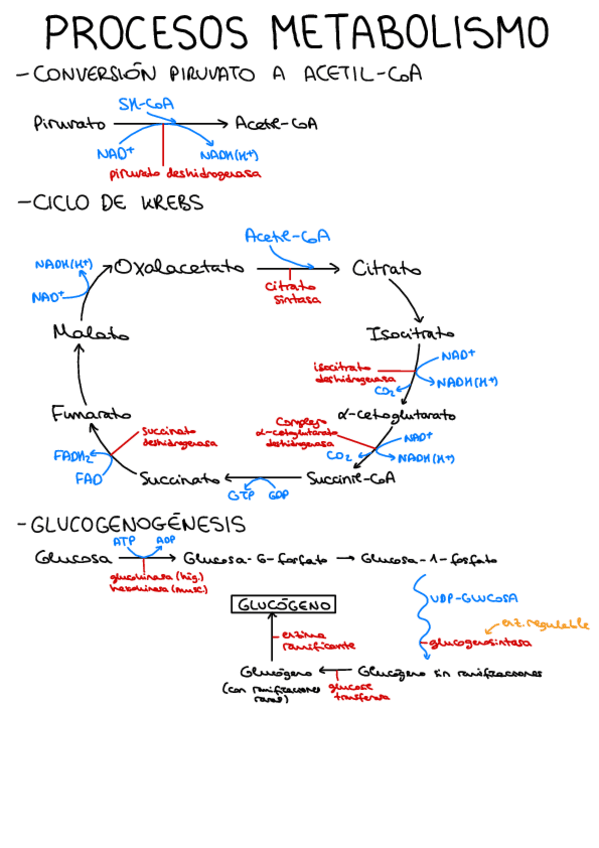 PROCESOS METABOLISMO
- CONVERSIÓN PIRUVATO A ACETIL-CoA
SH-CoA
Piruvato → Acetil-CoA
NAD+ NADH(H+)
piruvato deshidrogenasa
- CICLO DE KREBS
Acetil-CoA
NADH(H+) Oxalacetato → Citrato
NAD+ citrato
sintasa
Malato Isocitrato
isocitrato NAD+
deshidrogenasa NADH(H+)
CO2
Fumarato α-cetoglutarato
succinato Complejo
deshidrogenasa α-cetoglutarato NAD+
deshidrogenasa
FADH2 CO2 NADH(H+)
FAD Succinato ← Succinil-CoA
GTP GDP
- GLUCOGENOGÉNESIS
ATP ADP
Glucosa → Glucosa-6-fosfato → Glucosa-1-fosfato
glucokinasa (híg.)
hexokinasa (musc.)
UDP-GLUCOSA
GLUCÓGENO
enz. regulable
enzima glucogenosintasa
ramificante
Glucógeno ← Glucógeno sin ramificaciones
(con ramificaciones glucosil
raras) transferasa